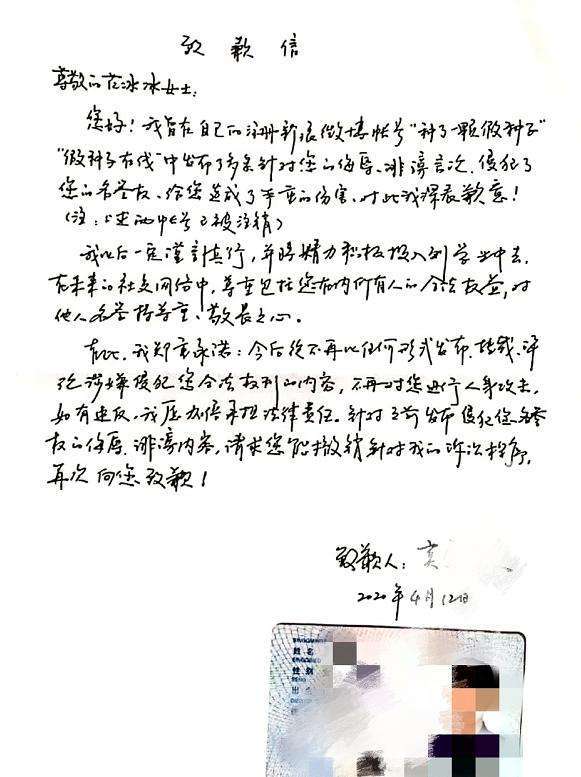 致歉信
尊敬的范冰冰女士:
您好!我曾在自己的注册新浪微博帐号“种了一颗假种子”
“假种子有伐”中发布了多条针对您的侮辱、诽谤言论,侵犯了
您的名誉权、给您造成了严重的伤害、对此我深表歉意!
(注:上述两帐号已被注销)
我以后一定谨言慎行,并将精力积极投入到学业中去,
在未来的社交网络中,尊重包括您在内所有人的合法权益,对
他人名誉持尊重、敬畏之心。
在此,我郑重承诺:今后绝不再以任何形式发布、转载、评
论涉嫌侵犯您合法权利的内容,不再对您进行人身攻击,
如有违反,我愿加倍承担法律责任。针对之前发布侵犯您名誉
权的侮辱、诽谤内容,请求您能撤销针对我的诉讼程序,
再次向您致歉!
致歉人:莫
2020年4月12日
姓名
性别